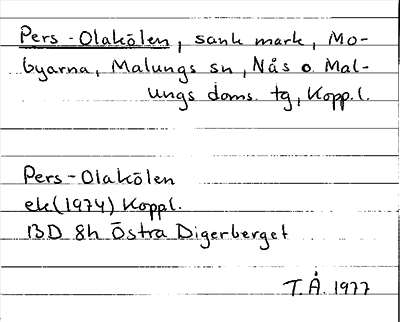 Pers-Olakölen, sank mark, Mo-
byarna, Malungs sn, Nås o. Mal-
ungs doms. tg, Kopp.l.
Pers-Olakölen
ek(1974) Koppl.
13D 8h Östra Digerberget
T.Å. 1977